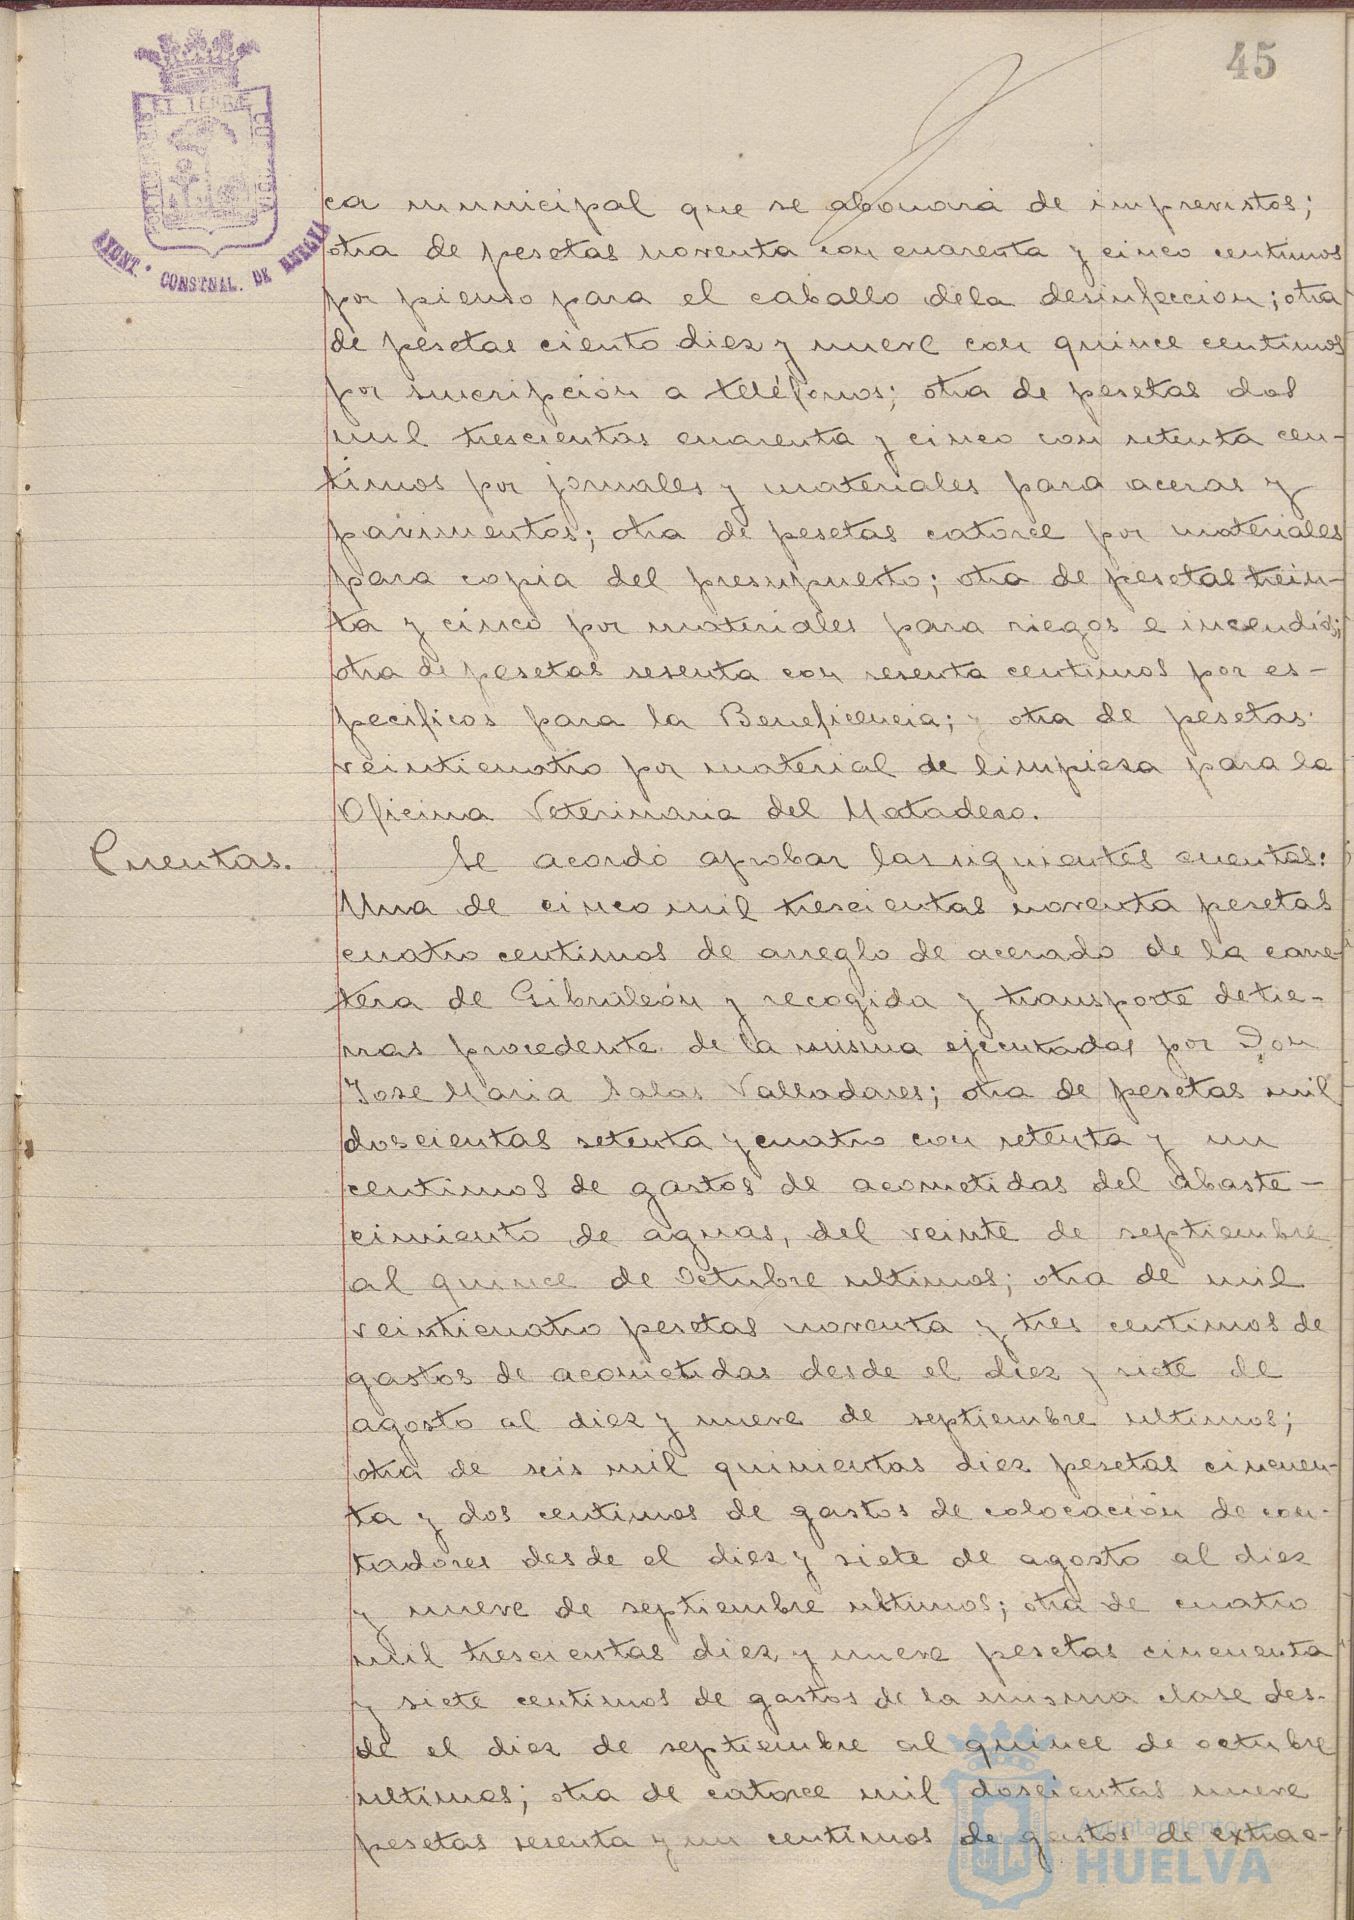 45
PORTUS MARIS ET TERRÆ CUSTODIA
AYUNT. CONSTNAL. DE HUELVA
ca municipal que se abonará de imprevistos;
otra de pesetas noventa con cuarenta y cinco centimos
por pienso para el caballo dela desinfeccion; otra
de pesetas ciento diez y nueve con quince centimos
por suscripción a teléfonos; otra de pesetas dos
mil trescientas cuarenta y cinco con setenta cen-
timos por jornales y materiales para aceras y
pavimentos; otra de pesetas catorce por materiales
para copia del presupuesto; otra de pesetas trein-
ta y cinco por materiales para riegos e incendios;
otra de pesetas sesenta con sesenta centimos por es-
pecificos para la Beneficencia; y otra de pesetas
veinticuatro por material de limpieza para la
Oficina Veterinaria del Matadero.
Cuentas.
Se acordó aprobar las siguientes cuentas:
Una de cinco mil trescientas noventa pesetas
cuatro centimos de arreglo de acerado de la carre-
tera de Gibraleón y recogida y transporte de tie-
rras procedente de la misma ejecutadas por Don
Jose Maria Salas Valladares; otra de pesetas mil
doscientas setenta y cuatro con setenta y un
centimos de gastos de acometidas del abaste-
cimiento de aguas, del veinte de septiembre
al quince de octubre ultimos; otra de mil
veinticuatro pesetas noventa y tres centimos de
gastos de acometidas desde el diez y siete de
agosto al diez y nueve de septiembre ultimos;
otra de seis mil quinientas diez pesetas cincuen-
ta y dos centimos de gastos de colocación de con-
tadores desde el diez y siete de agosto al diez
y nueve de septiembre ultimos; otra de cuatro
mil trescientas diez y nueve pesetas cincuenta
y siete centimos de gastos de la misma clase des-
de el diez de septiembre al quince de octubre
ultimos; otra de catorce mil doscientas nueve
pesetas sesenta y un centimos de gastos de extrac-
Ayuntamiento de
HUELVA